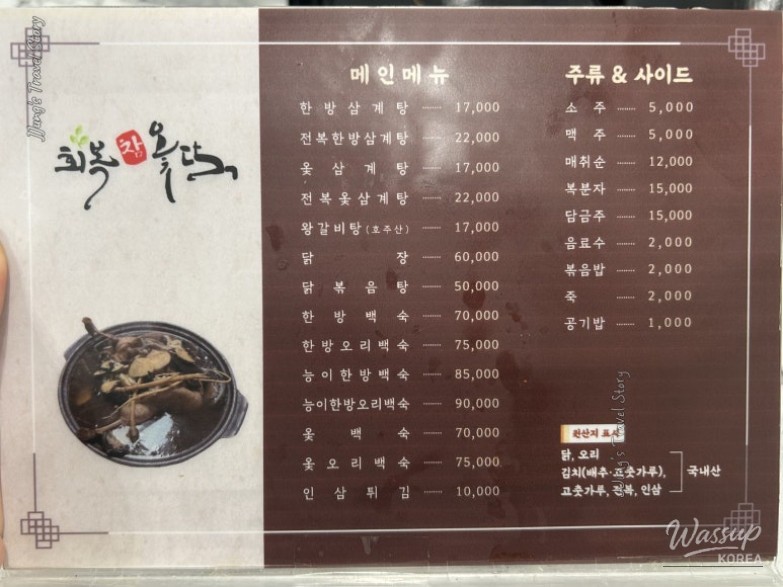 JJung's Travel Story
회복 참 옻닭
메인메뉴
한방삼계탕 17,000
전복한방삼계탕 22,000
옻삼계탕 17,000
전복옻삼계탕 22,000
왕갈비탕(호주산) 17,000
닭장 60,000
닭볶음탕 50,000
한방백숙 70,000
한방오리백숙 75,000
능이한방백숙 85,000
능이한방오리백숙 90,000
옻백숙 70,000
옻오리백숙 75,000
인삼튀김 10,000
주류 & 사이드
소주 5,000
맥주 5,000
매취순 12,000
복분자 15,000
담금주 15,000
음료수 2,000
볶음밥 2,000
죽 2,000
공기밥 1,000
원산지 표시
닭, 오리
김치(배추·고춧가루),
고춧가루, 전복, 인삼
국내산
JJung's Travel Story
Wassup
KOREA